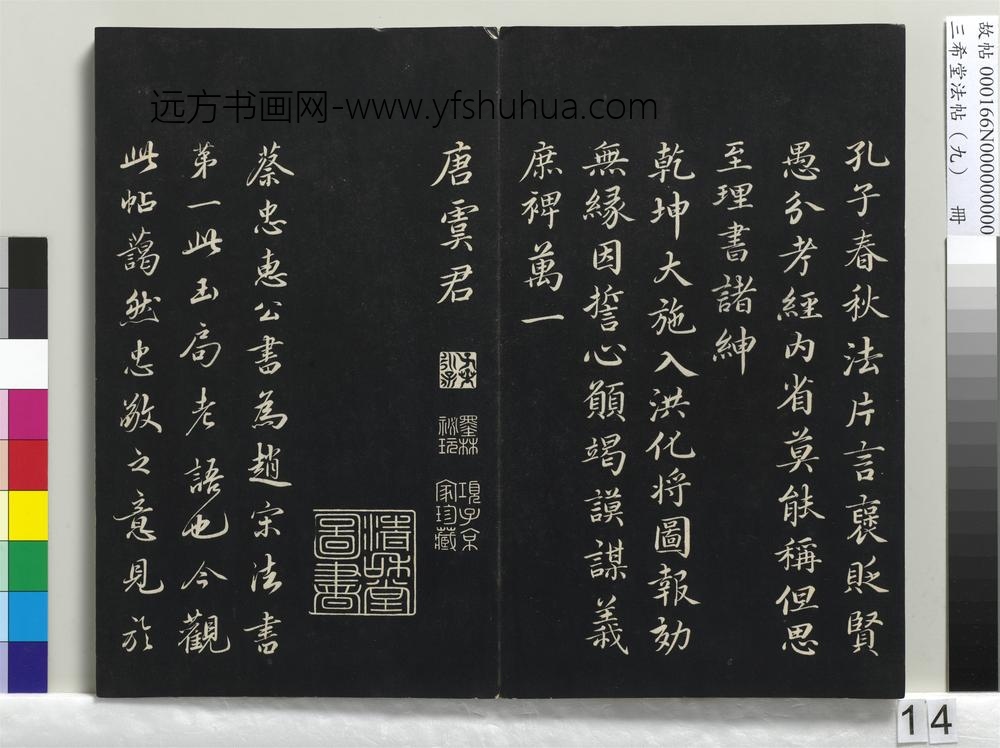 远方书画网-www.yfshuhua.com
孔子春秋法片言襃貶賢
愚分考經内省莫能稱但思
至理書諸紳
乾坤大施入洪化将圖報効
無縁因誓心願竭謨謀義
庶裨萬一
唐虞君
墨林
祕玩
項子京
家珍藏
蔡忠惠公書為趙宋法書
第一此玉局老語也今觀
此帖藹然忠敬之意見於
故帖 000166N000000000
三希堂法帖（九） 冊
14